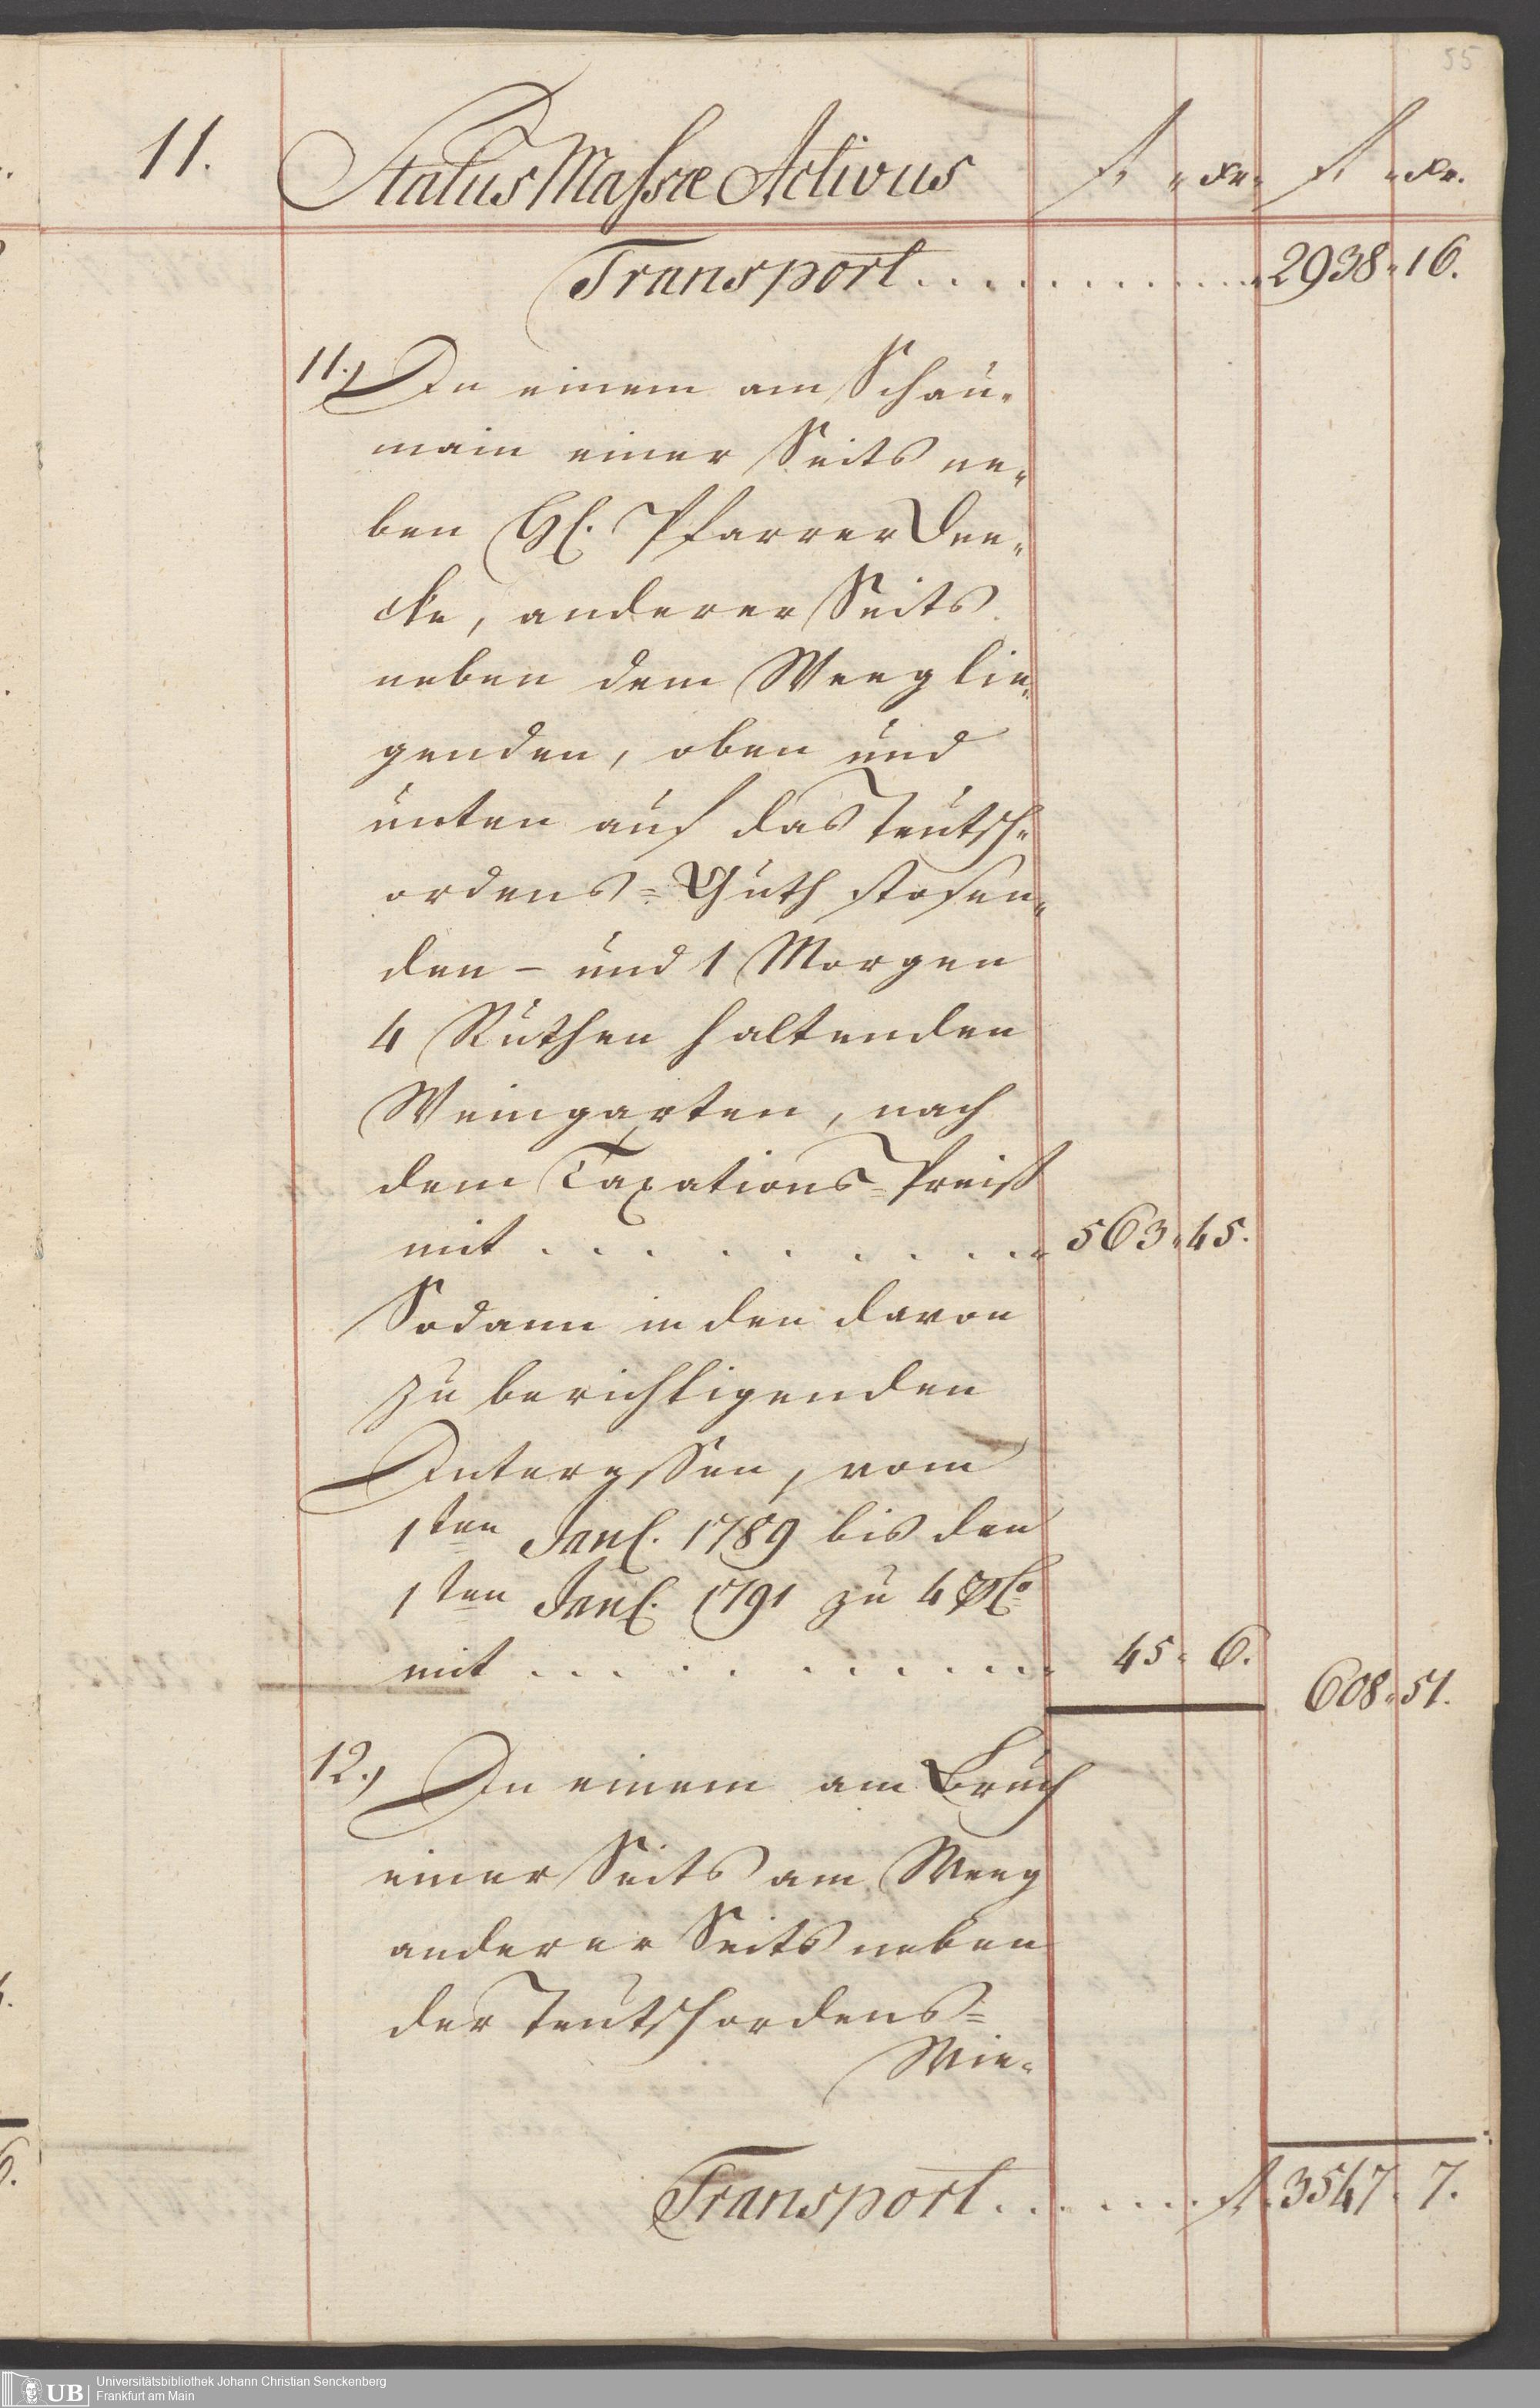 55
11. Status Massæ Activus fl. xr. fl. xr.
Transport . . . . . . . . . . . 2938. 16.
11.) In einem am Schau-
main einer Seits ne-
ben H. Pfarrer Dee-
cke, anderer Seits
neben dem Weeg lie-
genden, oben und
unten auf das Teutsch-
ordens=Guth stosen-
den – und 1 Morgen
4 Ruthen haltenden
Weingarten, nach
dem Taxations=Preiß
mit . . . . . . . . . 563. 45.
Sodann in den davon
zu berichtigenden
Interessen, vom
1ten Jan. 1789 bis den
1ten Jan. 1791 zu 4 pCo
mit . . . . . . . . . . . 45. 6.
608. 51.
12.) In einem am Bruch
einer Seits am Weeg
anderer Seits neben
der Teutschordens=
Wie-
Transport . . . . . . . fl. 3547. 7.
UB Universitätsbibliothek Johann Christian Senckenberg
Frankfurt am Main